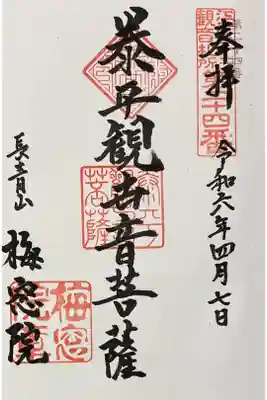 奉拝
令和六年四月七日
観音札所
十四番
泰平観世音菩薩
菩薩
長青山
梅窓院
梅窓